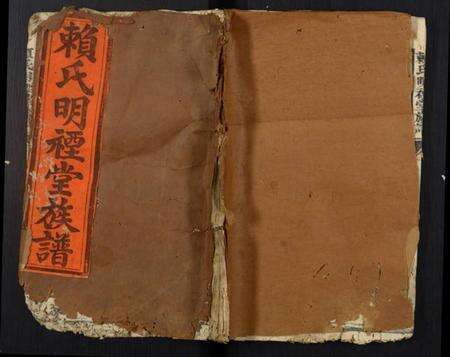 賴氏明禋堂族譜